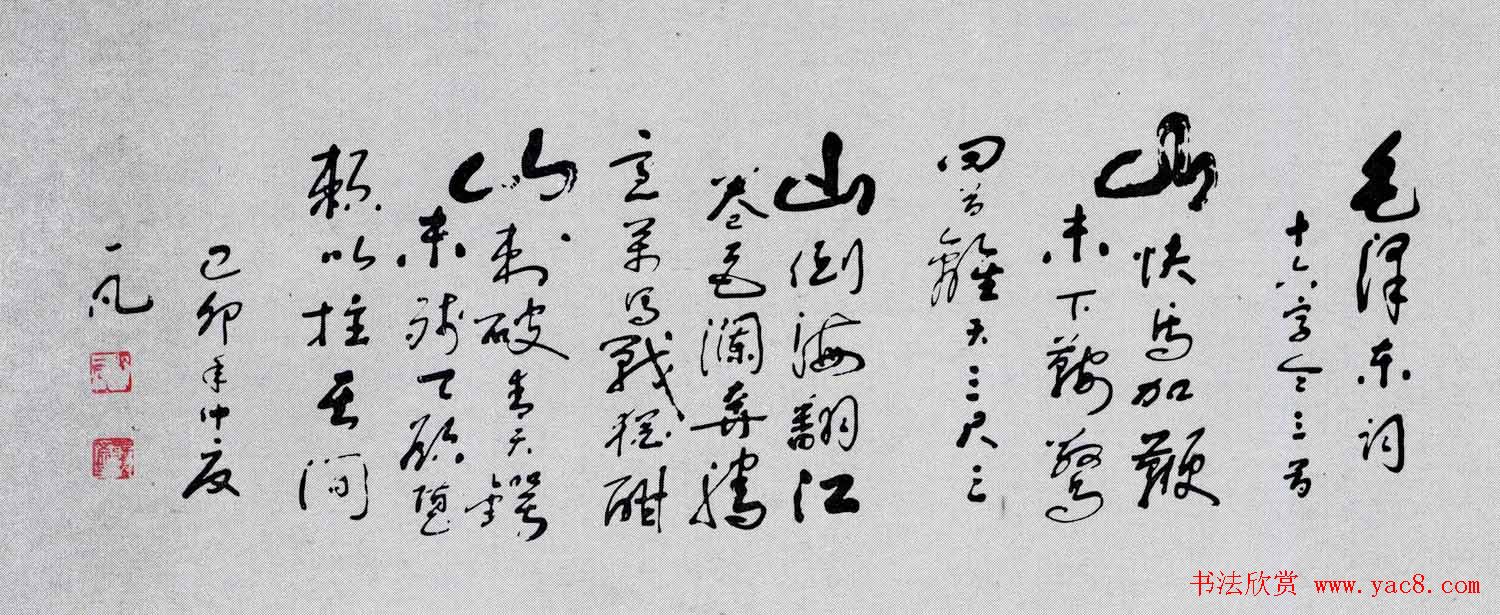 毛泽东词
十六字令三首
山快马加鞭
未下鞍驚
回首離天三尺三
山倒海翻江
卷巨澜奔腾
急萬马戰犹酣
山刺破青天鍔
未残天欲堕
赖以拄其间
己卯年仲夏
一凡
书法欣赏 www.yac8.com